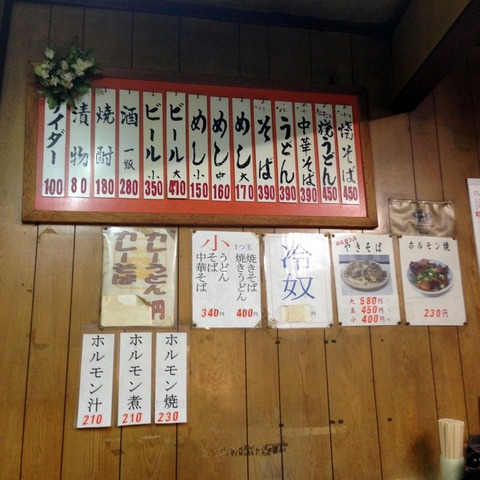 焼そば 450
焼うどん 450
中華そば 390
うどん 390
そば 390
めし大 170
めし中 160
めし小 150
ビール大 470
ビール小 350
酒一級 280
焼酎 180
漬物 80
サイダー 100
ホルモン焼
230円
やきそば
大 580円
並 450円
小 400円
冷奴
1つ玉
焼きそば
焼きうどん
400円
小
うどん
そば
中華そば
340円
カレーうどん 円
カレーそば
ホルモン焼 230
ホルモン煮 210
ホルモン汁 210